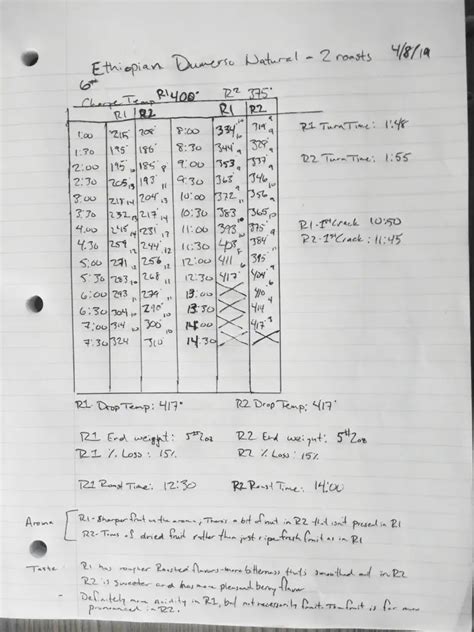 Ethiopian Dumerso Natural - 2 roasts 4/8/19
6oz
Charge Temp R1 400° R2 375°
R1 R2 R1 R2
1:00 215 208 8:00 334 319
1:30 195 186 8:30 344 328
2:00 195 185 9:00 353 337
2:30 205 193 9:30 363 346
3:00 218 204 10:00 372 356
3:30 232 217 10:30 383 365
4:00 245 231 11:00 393 375
4:30 259 244 11:30 403 384
5:00 271 256 12:00 411 395
5:30 283 268 12:30 417 404
6:00 293 279 13:00 410
6:30 304 290 13:30 414
7:00 314 300 14:00 417
7:30 324 310 14:30
R1 Turn Time: 1:48
R2 Turn Time: 1:55
R1-1st Crack 10:50
R2-1st Crack: 11:45
R1 Drop Temp: 417° R2 Drop Temp: 417
R1 End weight: 5 oz R2 End weight: 5 oz
R1 % Loss: 15% R2 % Loss: 15%
R1 Roast Time: 12:30 R2 Roast Time: 14:00
Aroma R1-Sharper fruit in the aroma, There's a bit of nut in R2 that isn't present in R1
R2-Tons of dried fruit rather than just ripe fresh fruit as in R1
Taste - R1 has rougher Roasted flavors-more bitterness that's smoothed out in R2
R2 is sweeter and has more pleasant berry flavor
- Definitely more acidity in R1, but not necessarily fruit. The fruit is far more
pronounced in R2.